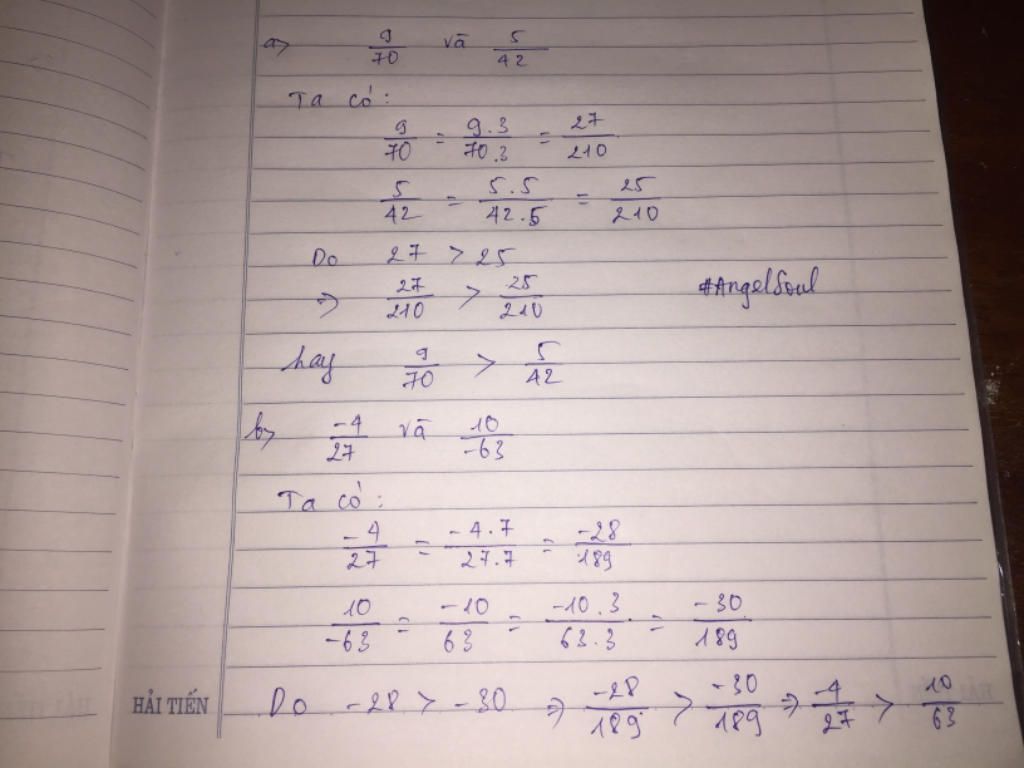 a) 9/70 và 5/42
Ta có:
9/70 = 9.3/70.3 = 27/210
5/42 = 5.5/42.5 = 25/210
Do 27 > 25
⇒ 27/210 > 25/210
#AngelSoul
hay 9/70 > 5/42
b) -4/27 và 10/-63
Ta có:
-4/27 = -4.7/27.7 = -28/189
10/-63 = -10/63 = -10.3/63.3 = -30/189
HẢI TIẾN
Do -28 > -30 ⇒ -28/189 > -30/189 ⇒ -4/27 > 10/63